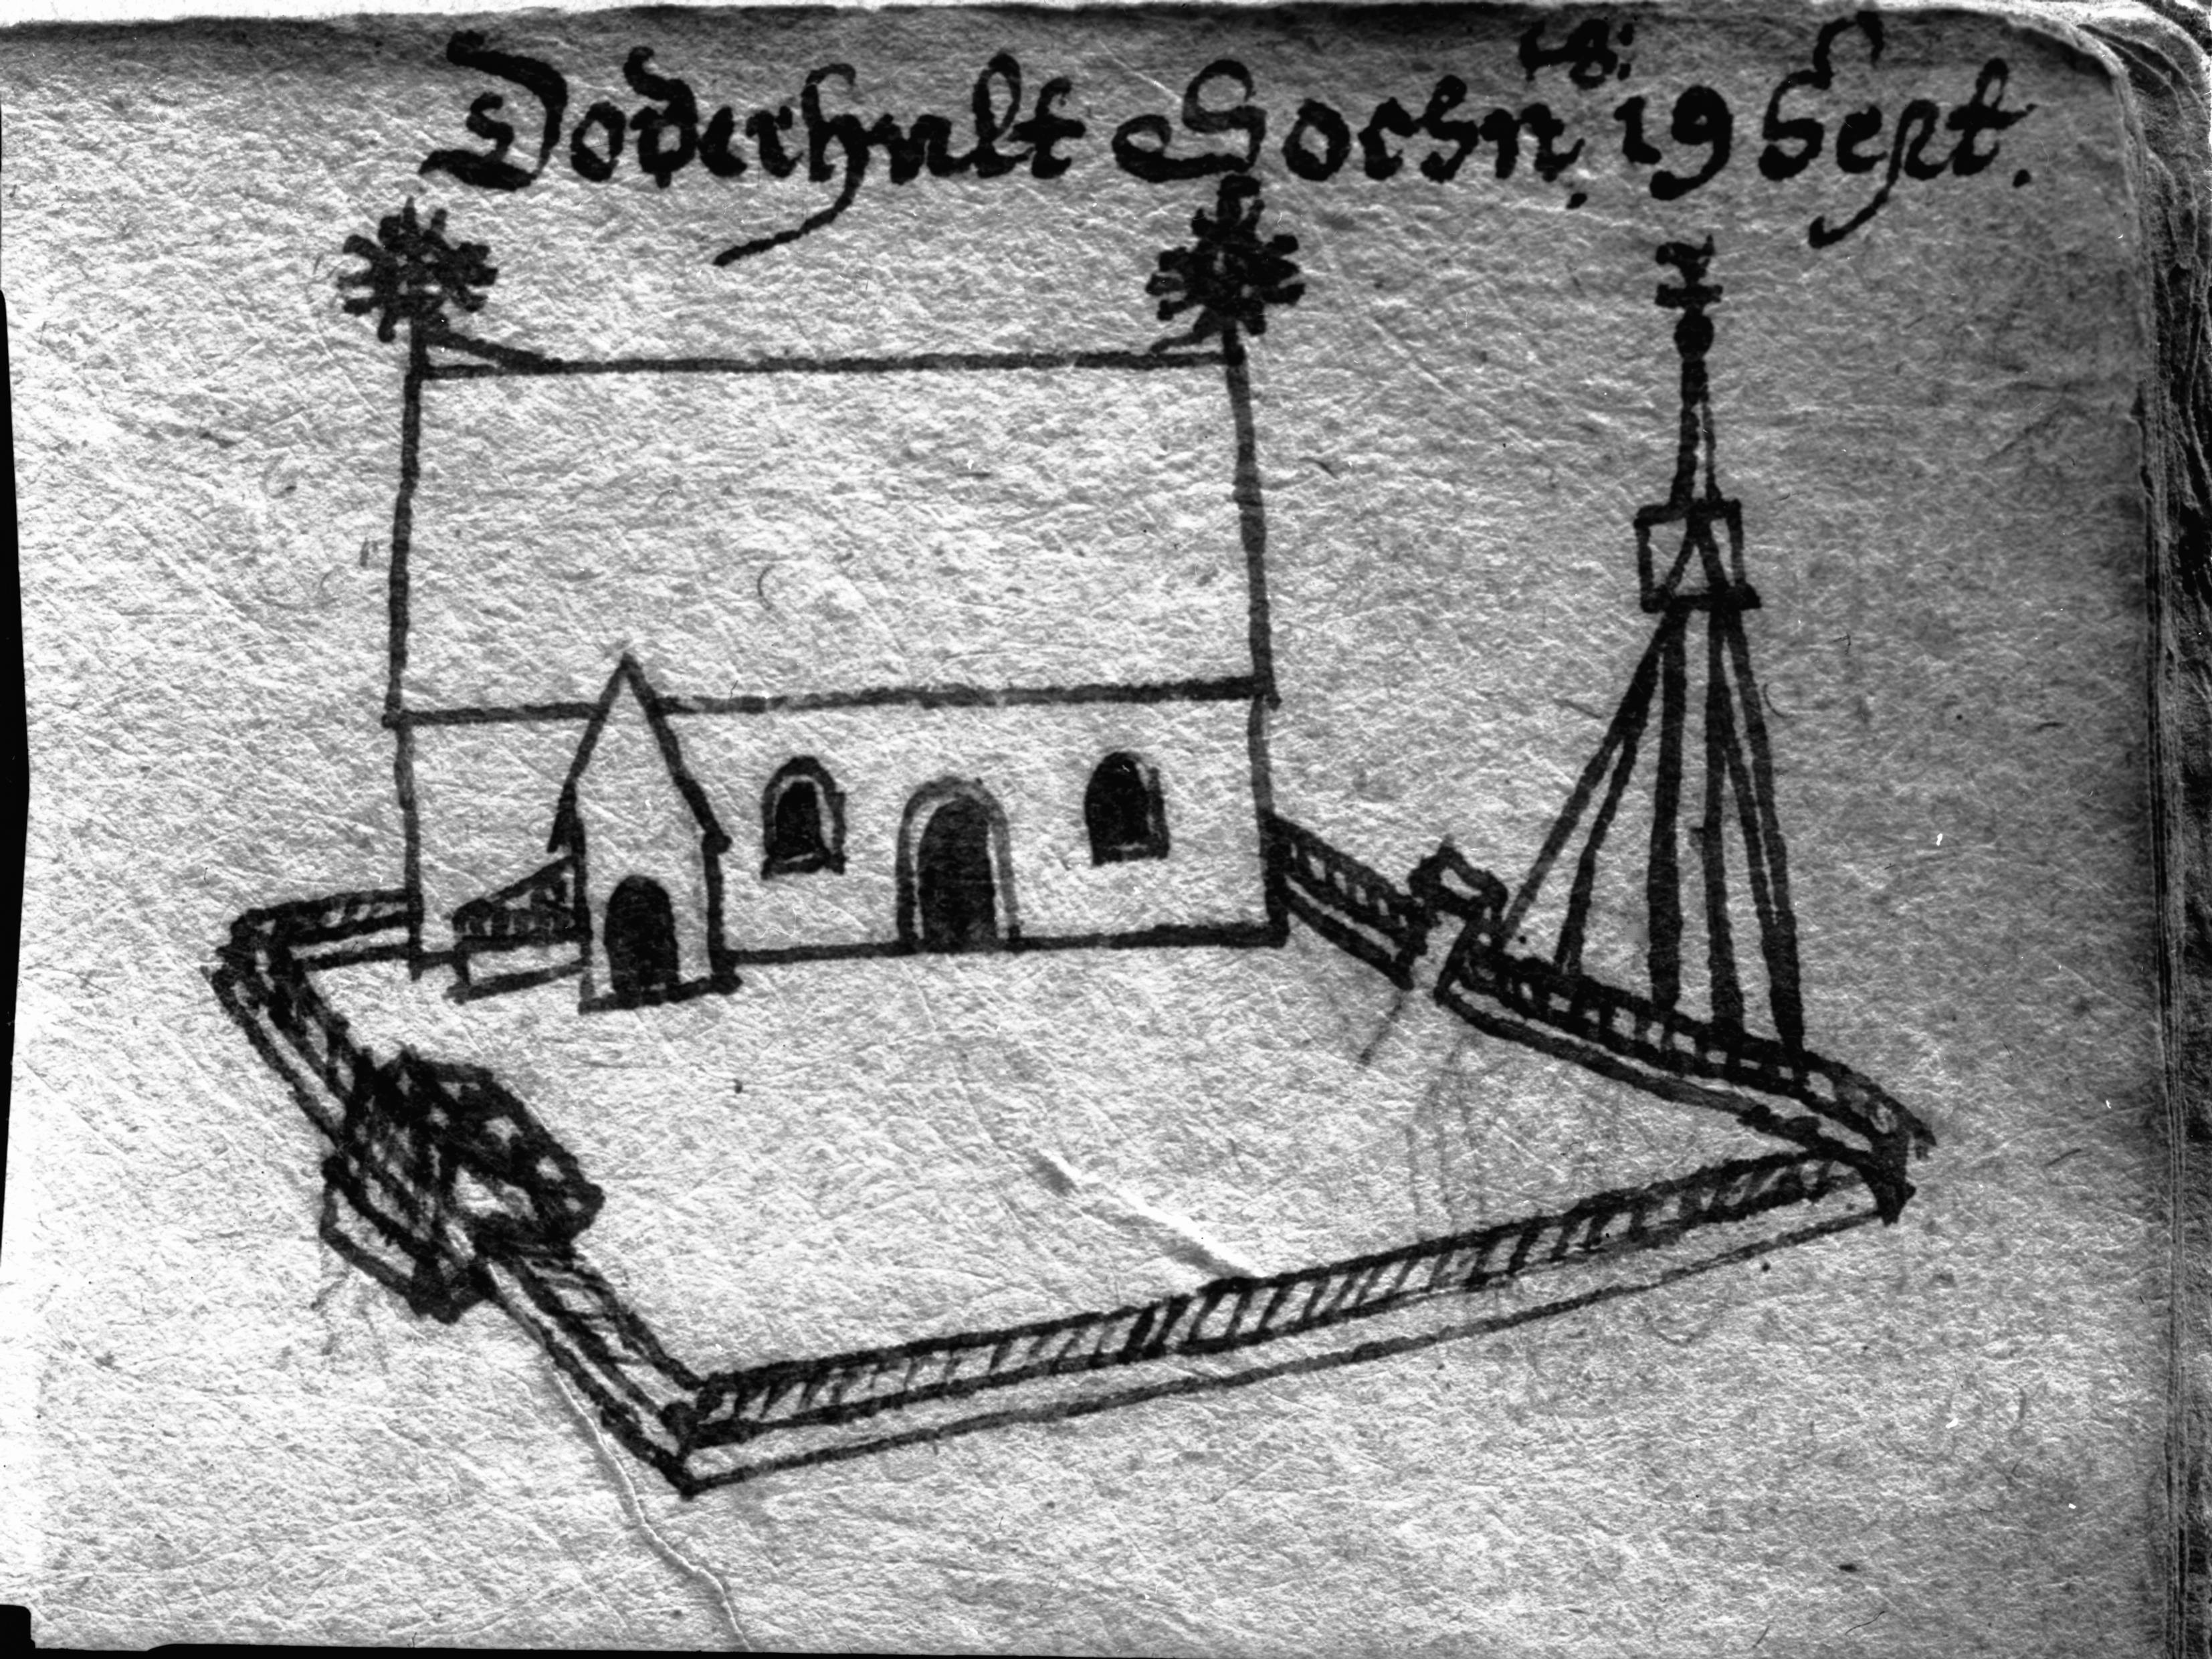 18:
Doderhult Sochn. 19 Sept.